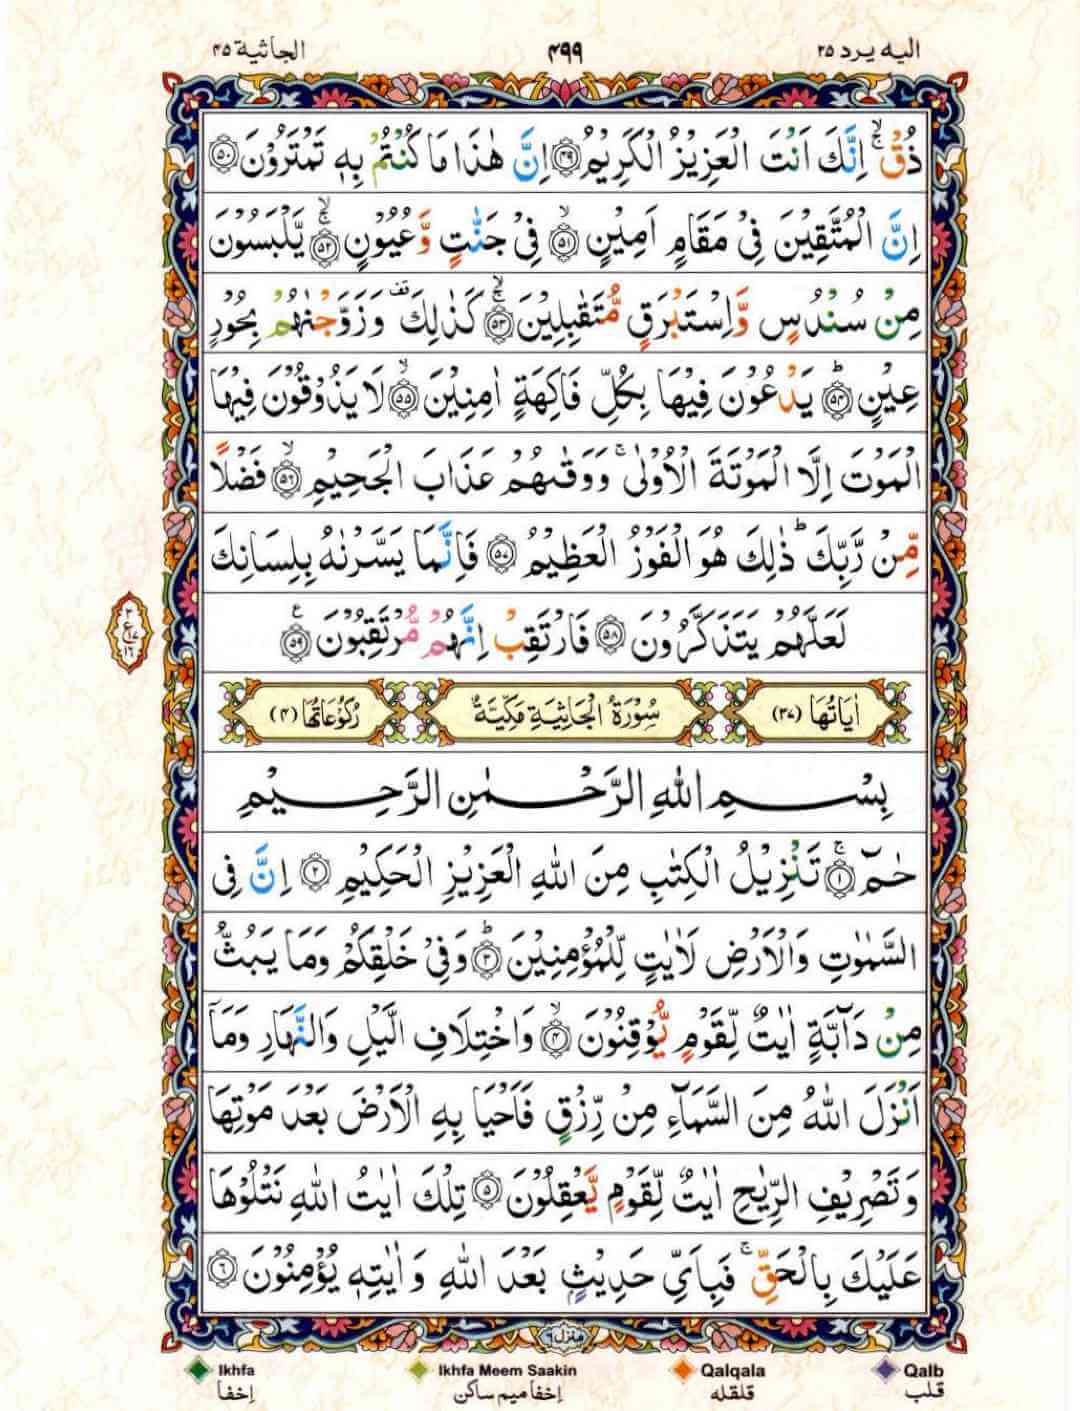 الجاثية ۴۵ ۴۹۹ اليه يرد ۲۵
ذُقْ ۚۙ اِنَّكَ اَنْتَ الْعَزِيْزُ الْكَرِيْمُ ﴿۴۹﴾ اِنَّ هٰذَا مَا كُنْتُمْ بِهٖ تَمْتَرُوْنَ ﴿۵۰﴾
اِنَّ الْمُتَّقِيْنَ فِىْ مَقَامٍ اَمِيْنٍ ۙ ﴿۵۱﴾ فِىْ جَنّٰتٍ وَّعُيُوْنٍ ۚۙ ﴿۵۲﴾ يَّلْبَسُوْنَ
مِنْ سُنْدُسٍ وَّاِسْتَبْرَقٍ مُّتَقٰبِلِيْنَ ۚۙ ﴿۵۳﴾ كَذٰلِكَ قف وَزَوَّجْنٰهُمْ بِحُوْرٍ
عِيْنٍ ؕ ﴿۵۴﴾ يَدْعُوْنَ فِيْهَا بِكُلِّ فَاكِهَةٍ اٰمِنِيْنَ ۙ ﴿۵۵﴾ لَا يَذُوْقُوْنَ فِيْهَا
الْمَوْتَ اِلَّا الْمَوْتَةَ الْاُوْلٰى ۚ وَوَقٰٮهُمْ عَذَابَ الْجَحِيْمِ ۙ ﴿۵۶﴾ فَضْلًا
مِّنْ رَّبِّكَ ؕ ذٰلِكَ هُوَ الْفَوْزُ الْعَظِيْمُ ﴿۵۷﴾ فَاِنَّمَا يَسَّرْنٰهُ بِلِسَانِكَ
لَعَلَّهُمْ يَتَذَكَّرُوْنَ ﴿۵۸﴾ فَارْتَقِبْ اِنَّهُمْ مُّرْتَقِبُوْنَ ﴿۵۹﴾ ع
۳
ع ۱۷
۱۶
اٰيَاتُهَا (۳۷) سُوْرَةُ الْجَاثِيَةِ مَكِّيَّةٌ رُكُوْعَاتُهَا (۴)
بِسْمِ اللهِ الرَّحْمٰنِ الرَّحِيْمِ
حٰمٓ ۚ ﴿۱﴾ تَنْزِيْلُ الْكِتٰبِ مِنَ اللهِ الْعَزِيْزِ الْحَكِيْمِ ﴿۲﴾ اِنَّ فِى
السَّمٰوٰتِ وَالْاَرْضِ لَاٰيٰتٍ لِّلْمُؤْمِنِيْنَ ؕ ﴿۳﴾ وَفِىْ خَلْقِكُمْ وَمَا يَبُثُّ
مِنْ دَآبَّةٍ اٰيٰتٌ لِّقَوْمٍ يُّوْقِنُوْنَ ۙ ﴿۴﴾ وَاخْتِلَافِ الَّيْلِ وَالنَّهَارِ وَمَاۤ
اَنْزَلَ اللهُ مِنَ السَّمَآءِ مِنْ رِّزْقٍ فَاَحْيَا بِهِ الْاَرْضَ بَعْدَ مَوْتِهَا
وَتَصْرِيْفِ الرِّيٰحِ اٰيٰتٌ لِّقَوْمٍ يَّعْقِلُوْنَ ﴿۵﴾ تِلْكَ اٰيٰتُ اللهِ نَتْلُوْهَا
عَلَيْكَ بِالْحَقِّ ۚ فَبِاَىِّ حَدِيْثٍۢ بَعْدَ اللهِ وَاٰيٰتِهٖ يُؤْمِنُوْنَ ﴿۶﴾
منزل ۶
Ikhfa Ikhfa Meem Saakin Qalqala Qalb
إخفا إخفا ميم ساكن قلقله قلب